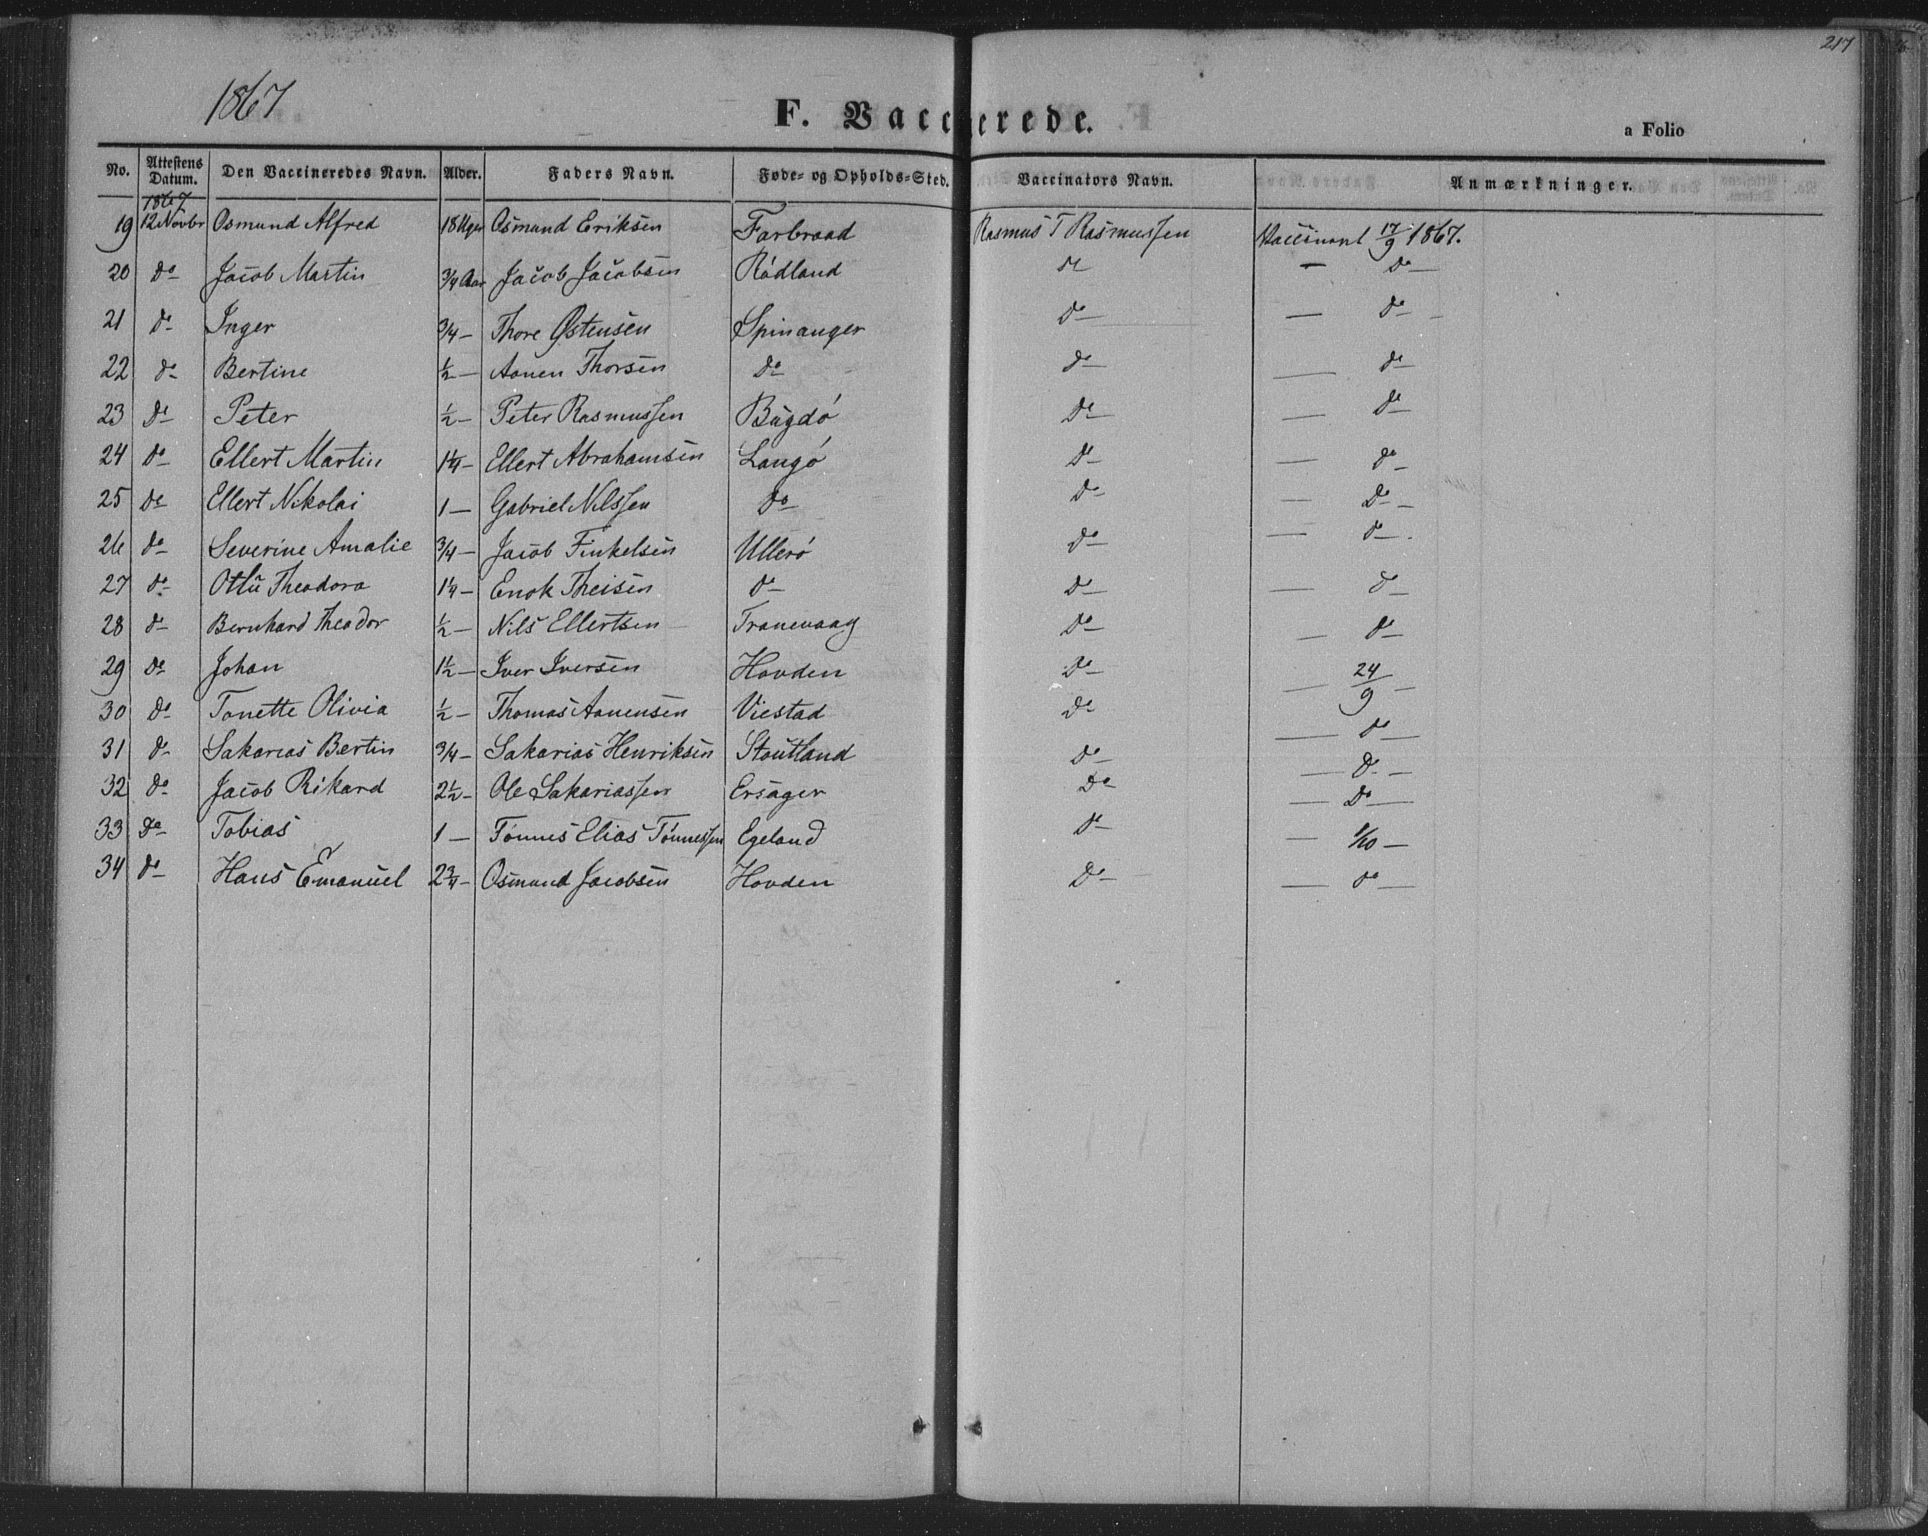 217
1867
F. Vaccinerede.
a Folio
No. Attestens Datum. Den Vaccineredes Navn. Alder. Faders Navn. Føde- og Opholds-Sted. Vaccinators Navn. Anmærkninger.
1867
19 12 Novbr Osmund Alfred 18 Uger Osmund Eriksen Farbraad Rasmus T Rasmussen Vaccineret 17/9 1867.
20 do Jacob Martin 3/4 Aar Jacob Jacobsen Rødland do — do —
21 do Inger 3/4 — Thore Østensen Spinanger do — do —
22 do Bertine 1/2 — Aanen Thorsen do do — do
23 do Peter 1/2 — Peter Rasmussen Bugdø do — do
24 do Ellert Martin 1 1/4 — Ellert Abrahamsen Langø do — do
25 do Ellert Nikolai 1 — Gabriel Nilssen do do — do —
26 do Severine Amalie 3/4 — Jacob Finkelsen Ullerø do — do
27 do Otto Theodora 1 1/4 — Enok Theisen do do — do
28 do Bernhard Theodor 1/2 — Nils Ellertsen Tranevaag do — do
29 do Johan 1 1/2 — Iver Iversen Hovden do — 24/9 —
30 do Tonette Olivia 1/2 — Thomas Aanensen Viestad do — do —
31 do Sakarias Bertin 3/4 — Sakarias Henriksen Stoutland do — do —
32 do Jacob Rikard 2 1/2 — Ole Sakariassen Ersager do — do —
33 do Tobias 1 — Tønnes Elias Tønnessen Egeland do — 1/10 —
34 do Hans Emanuel 2 3/4 — Osmund Jacobsen Hovden do — do —